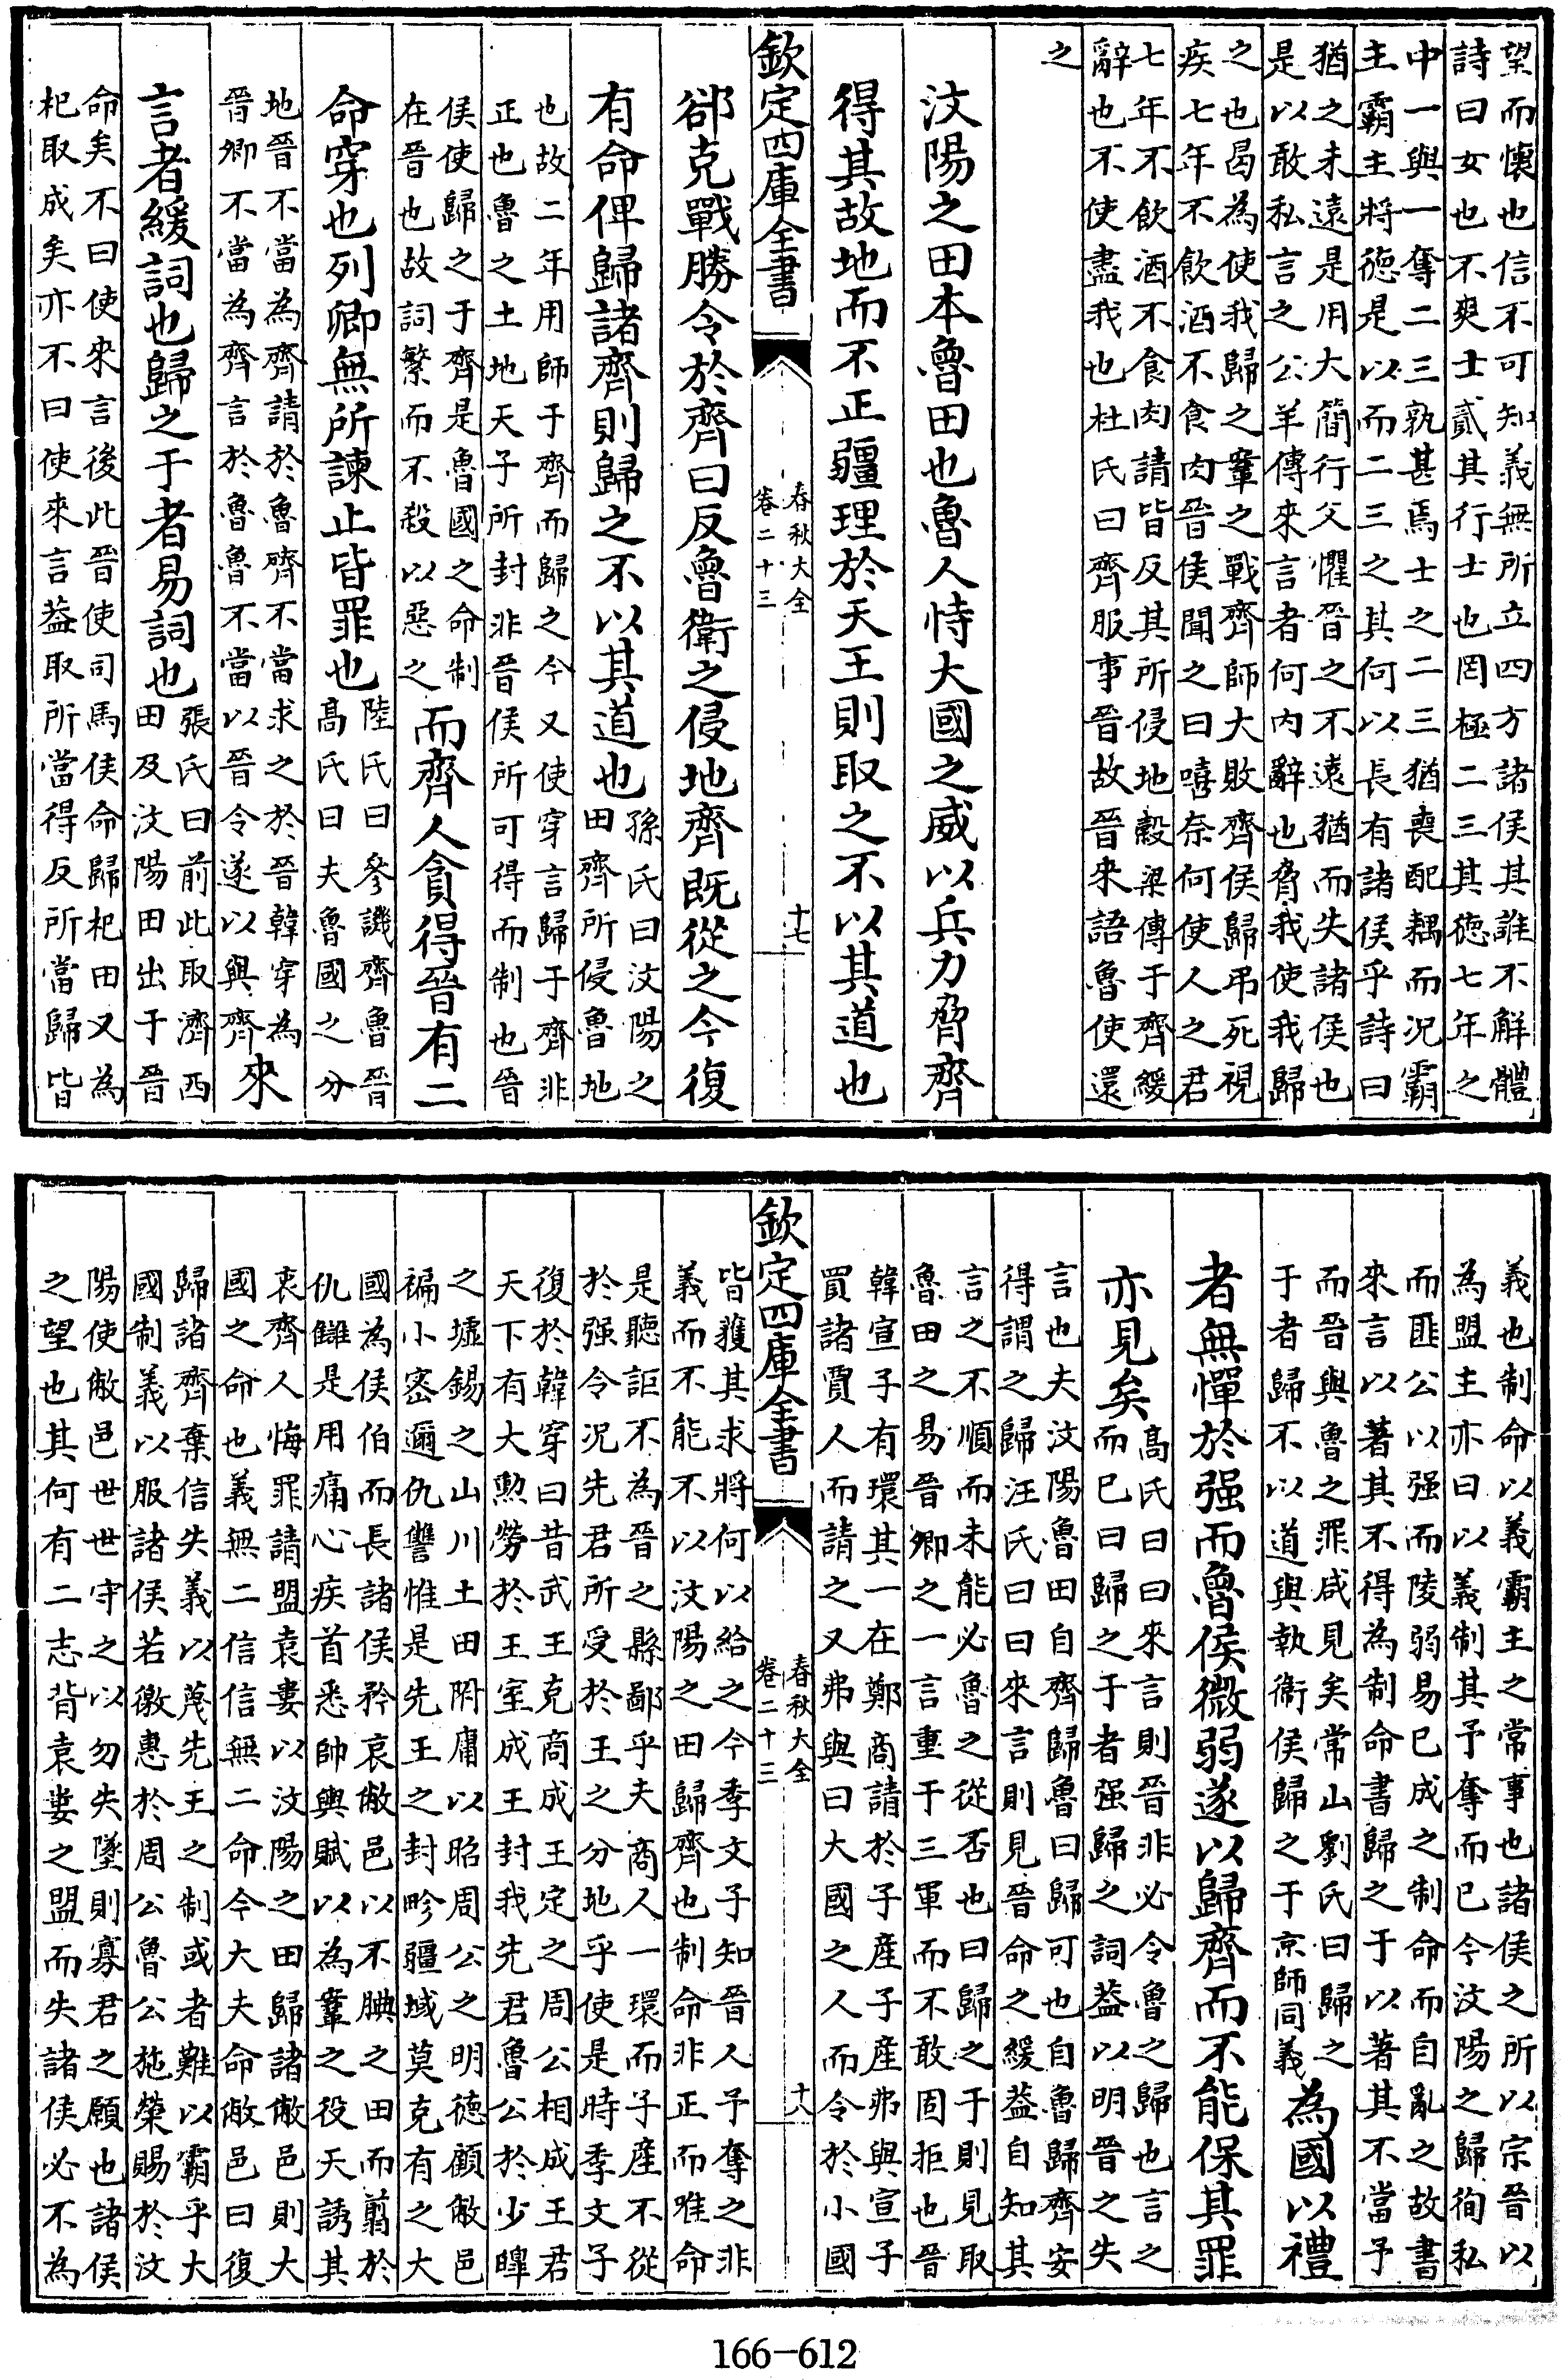 望而懷也信不可知義無所立四方諸侯其誰不解體
詩曰女也不爽士貳其行士也罔極二三其德七年之
中一與一奪二三孰甚焉士之二三猶喪配耦而況霸
主霸主將德是以而二三之其何以長有諸侯乎詩曰
猶之未遠是用大簡行父懼晉之不遠猶而失諸侯也
是以敢私言之公羊傳來言者何內辭也脅我使我歸
之也曷為使我歸之鞌之戰齊師大敗齊侯歸弔死視
疾七年不飲酒不食肉晉侯聞之曰嘻奈何使人之君
七年不飲酒不食肉請皆反其所侵地穀梁傳于齊緩
辭也不使盡我也杜氏曰齊服事晉故晉來語魯使還
之
汶陽之田本魯田也魯人恃大國之威以兵力脅齊
得其故地而不正疆理於天王則取之不以其道也
欽定四庫全書
春秋大全
卷二十三
十七
郤克戰勝令於齊曰反魯衛之侵地齊既從之今復
有命俾歸諸齊則歸之不以其道也
孫氏曰汶陽之
田齊所侵魯地
也故二年用師于齊而歸之今又使穿言歸于齊非
正也魯之土地天子所封非晉侯所可得而制也晉
侯使歸之于齊是魯國之命制
在晉也故詞繁而不殺以惡之
而齊人貪得晉有二
命穿也列卿無所諫止皆罪也
陸氏曰參譏齊魯晉
高氏曰夫魯國之分
地晉不當為齊請於魯齊不當求之於晉韓穿為
晉卿不當為齊言於魯魯不當以晉令遂以與齊
來
言者緩詞也歸之于者易詞也
張氏曰前此取濟西
田及汶陽田出于晉
命矣不曰使來言後此晉使司馬侯命歸杞田又為
杞取成矣亦不曰使來言益取所當得反所當歸皆
義也制命以義霸主之常事也諸侯之所以宗晉以
為盟主亦曰以義制其予奪而已今汶陽之歸徇私
而匪公以强而陵弱易已成之制命而自亂之故書
來言以著其不得為制命書歸之于以著其不當予
而晉與魯之罪咸見矣常山劉氏曰歸之
于者歸不以道與執衞侯歸之于京師同義
為國以禮
者無憚於强而魯侯微弱遂以歸齊而不能保其罪
亦見矣
高氏曰曰來言則晉非必令魯之歸也言之
而已曰歸之于者强歸之詞蓋以明晉之失
言也夫汶陽魯田自齊歸魯曰歸可也自魯歸齊安
得謂之歸汪氏曰曰來言則見晉命之緩益自知其
言之不順而未能必魯之從否也曰歸之于則見取
魯田之易晉卿之一言重于三軍而不敢固拒也晉
韓宣子有環其一在鄭商請於子產子產弗與宣子
買諸賈人而請之又弗與曰大國之人而令於小國
欽定四庫全書
春秋大全
卷二十三
十八
皆獲其求將何以給之今季文子知晉人予奪之非
義而不能不以汶陽之田歸齊也制命非正而唯命
是聽詎不為晉之縣鄙乎夫商人一環而子產不從
於强令況先君所受於王之分地乎使是時季文子
復於韓穿曰昔武王克商成王定之周公相成王君
天下有大勲勞於王室成王封我先君魯公於少皡
之墟錫之山川土田附庸以昭周公之明德顧敝邑
褊小密邇仇讐惟是先王之封畛疆域莫克有之大
國為侯伯而長諸侯矜哀敝邑以不腆之田而翦於
仇讎是用痛心疾首悉帥輿賦以為鞌之役天誘其
衷齊人悔罪請盟袁婁以汶陽之田歸諸敝邑則大
國之命也義無二信信無二命今大夫命敝邑曰復
歸諸齊棄信失義以蔑先王之制或者難以霸乎大
國制義以服諸侯若徼惠於周公魯公施榮賜於汶
陽使敝邑世世守之以勿失墜則寡君之願也諸侯
之望也其何有二志背袁婁之盟而失諸侯必不為
166-612